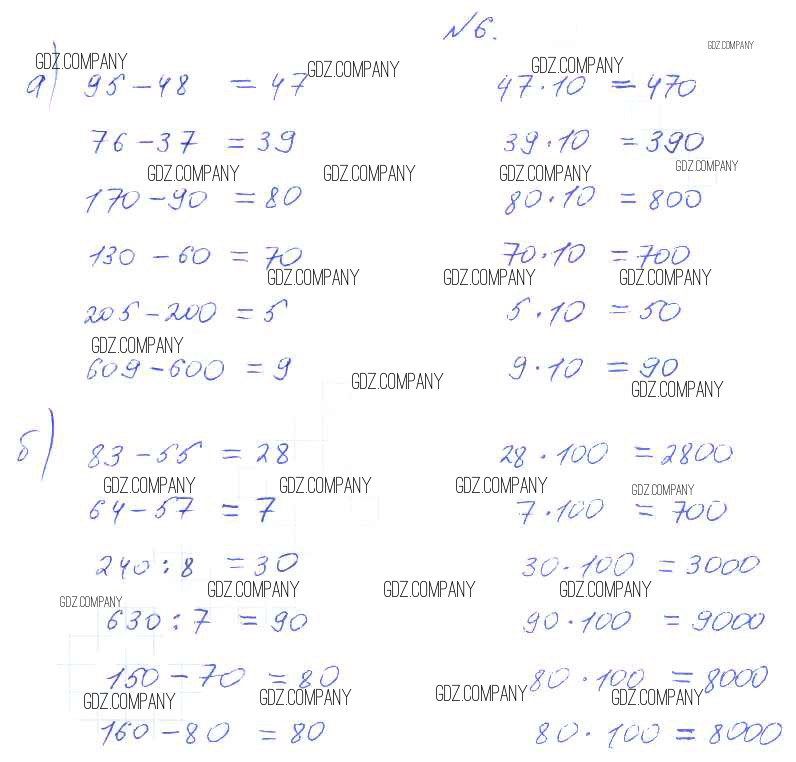 №6.
GDZ.COMPANY
GDZ.COMPANY GDZ.COMPANY GDZ.COMPANY
а) 95-48 = 47 47·10 = 470
76-37 = 39 39·10 = 390
GDZ.COMPANY GDZ.COMPANY GDZ.COMPANY GDZ.COMPANY
170-90 = 80 80·10 = 800
130-60 = 70 70·10 = 700
GDZ.COMPANY GDZ.COMPANY GDZ.COMPANY
205-200 = 5 5·10 = 50
GDZ.COMPANY
609-600 = 9 9·10 = 90
GDZ.COMPANY GDZ.COMPANY
б) 83-55 = 28 28·100 = 2800
GDZ.COMPANY GDZ.COMPANY GDZ.COMPANY GDZ.COMPANY
64-57 = 7 7·100 = 700
240:8 = 30 30·100 = 3000
GDZ.COMPANY GDZ.COMPANY GDZ.COMPANY
GDZ.COMPANY
630:7 = 90 90·100 = 9000
150-70 = 80 80·100 = 8000
GDZ.COMPANY GDZ.COMPANY GDZ.COMPANY GDZ.COMPANY
160-80 = 80 80·100 = 8000